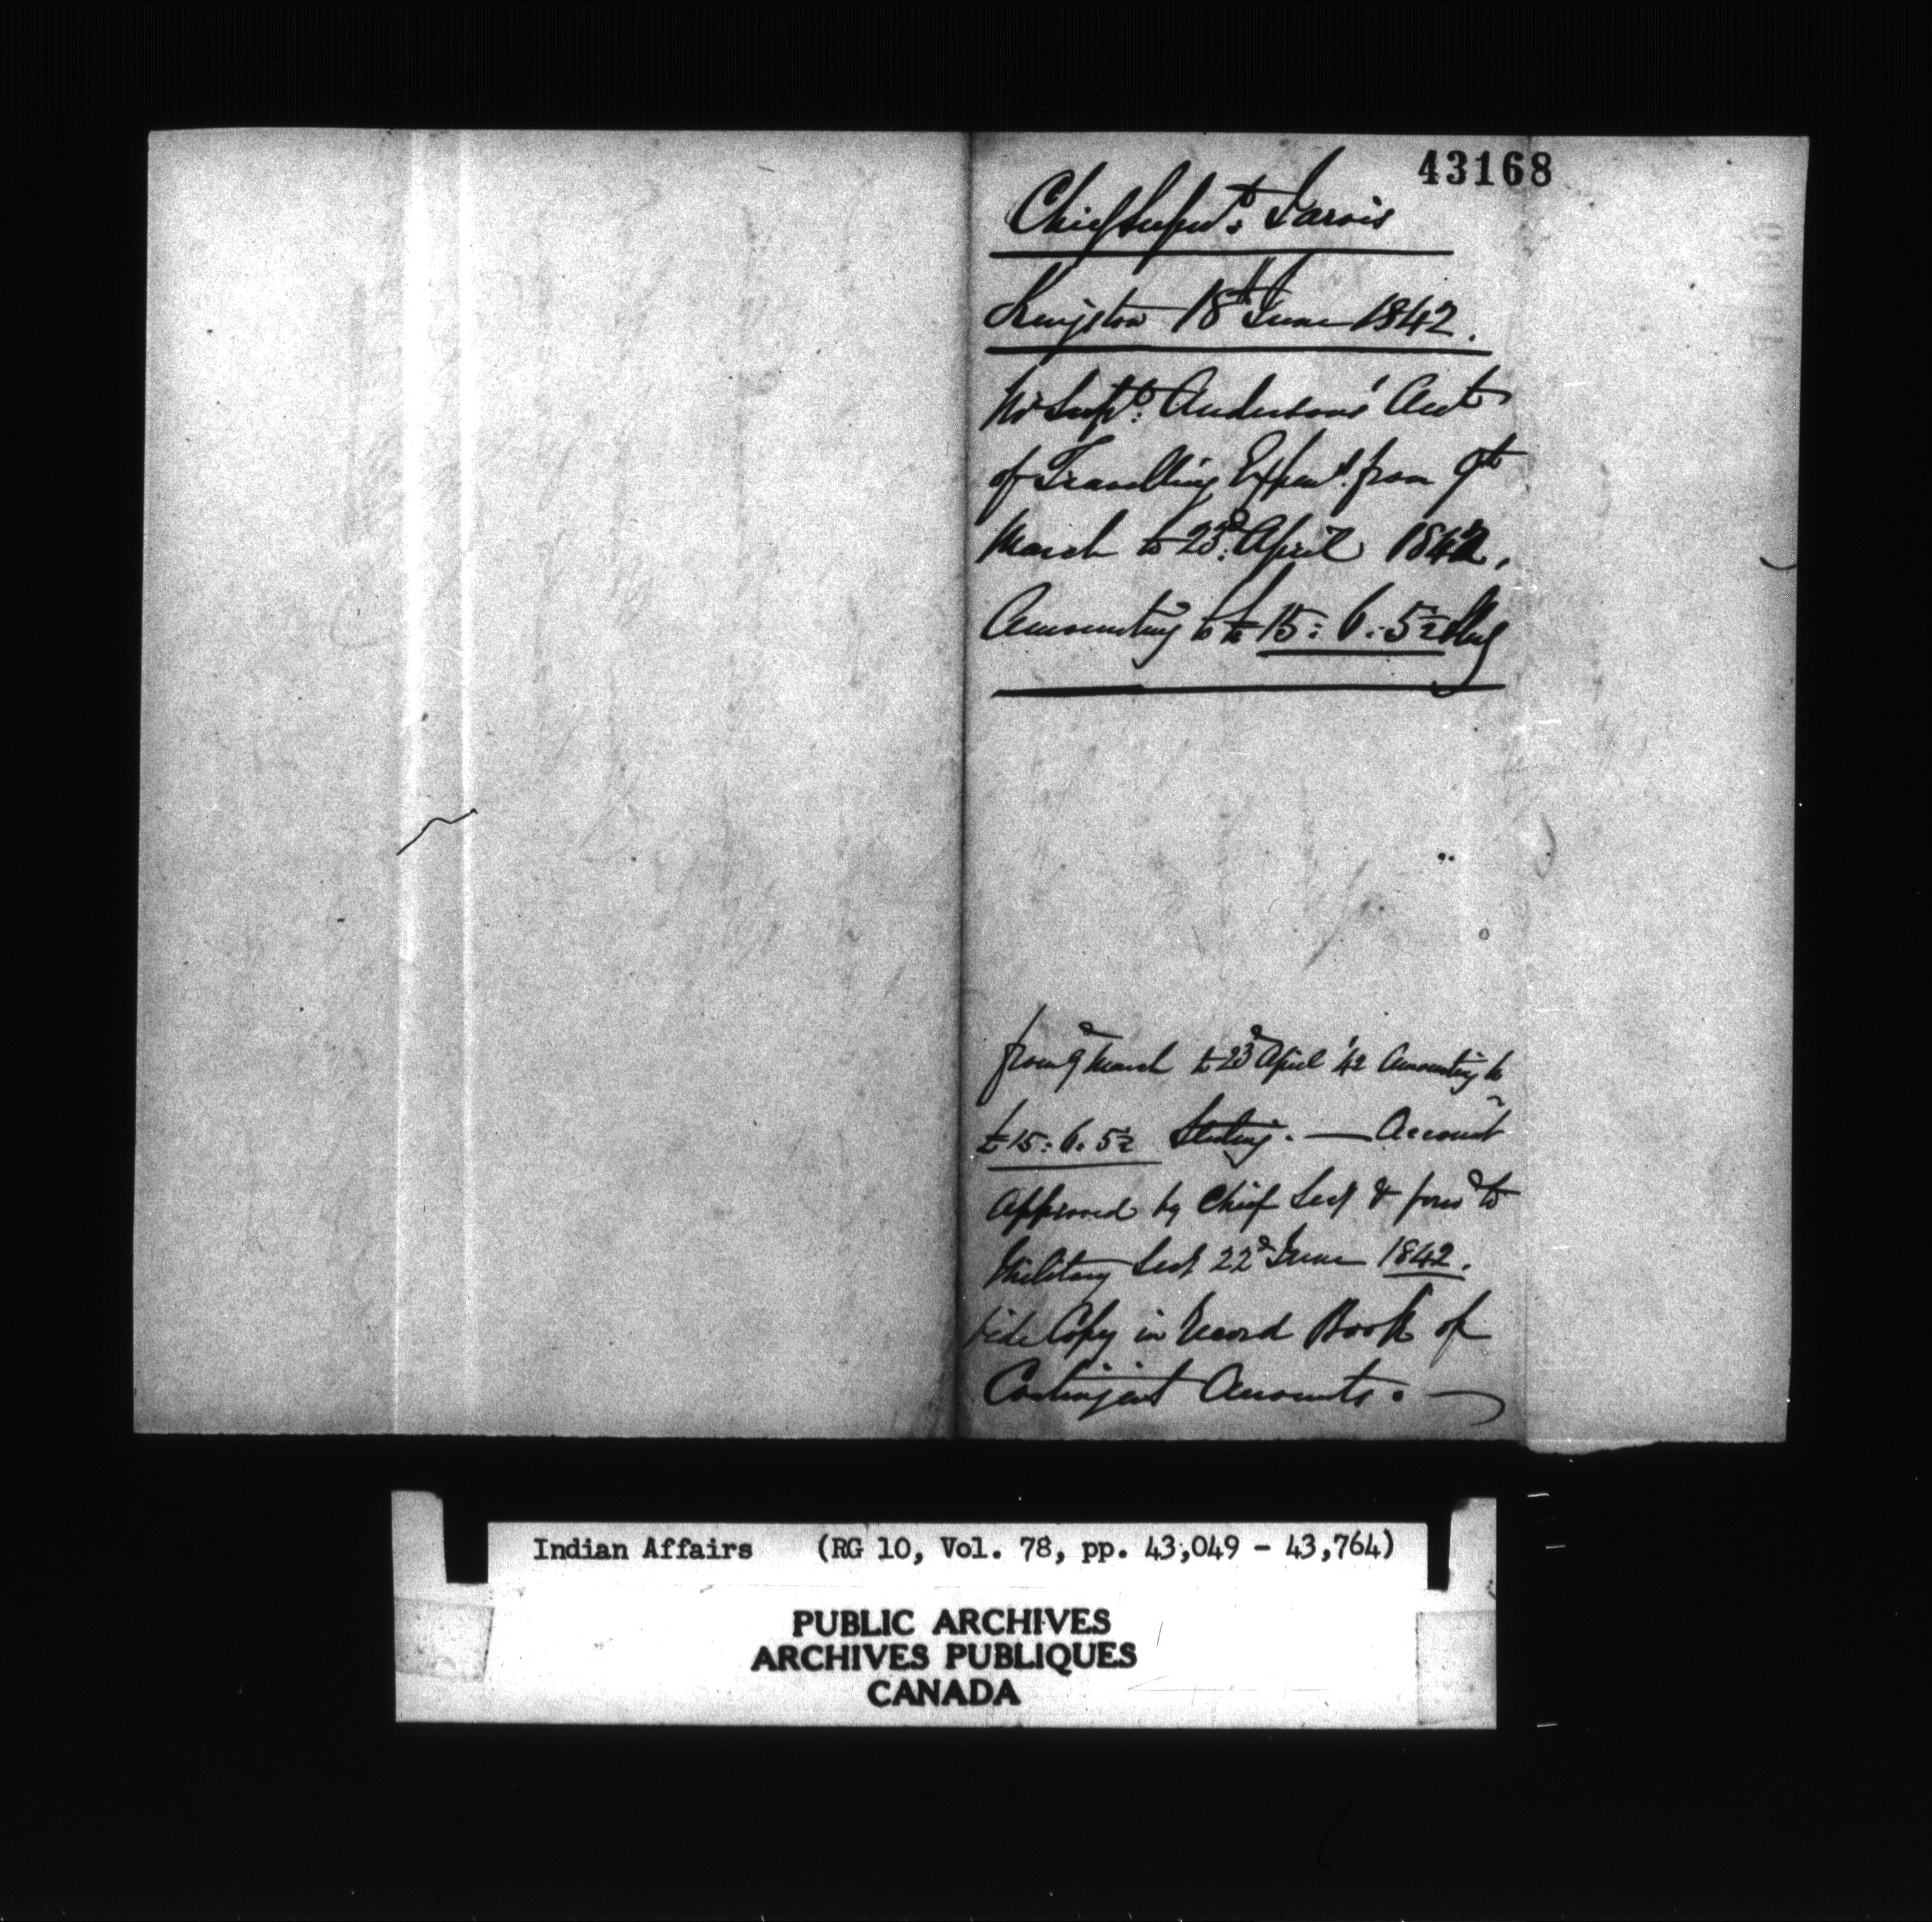 43168
Chief Supdt. Jarvis
Kingston 18th June 1842.
Supt. Anderson's Acct
of Travelling Expens. from 9th
March to 23d. April 1842,
Amounting to £15: 6: 5½ Stg
from 9 March to 23d April '42 Amounting to
£15: 6. 5½ Sterling. — Account
approved by Chief Secy & forwd to
Military Secy 22d June 1842.
vide Copy in Record Book of
Contingent Accounts. —
Indian Affairs (RG 10, Vol. 78, pp. 43,049 - 43,764)
PUBLIC ARCHIVES
ARCHIVES PUBLIQUES
CANADA